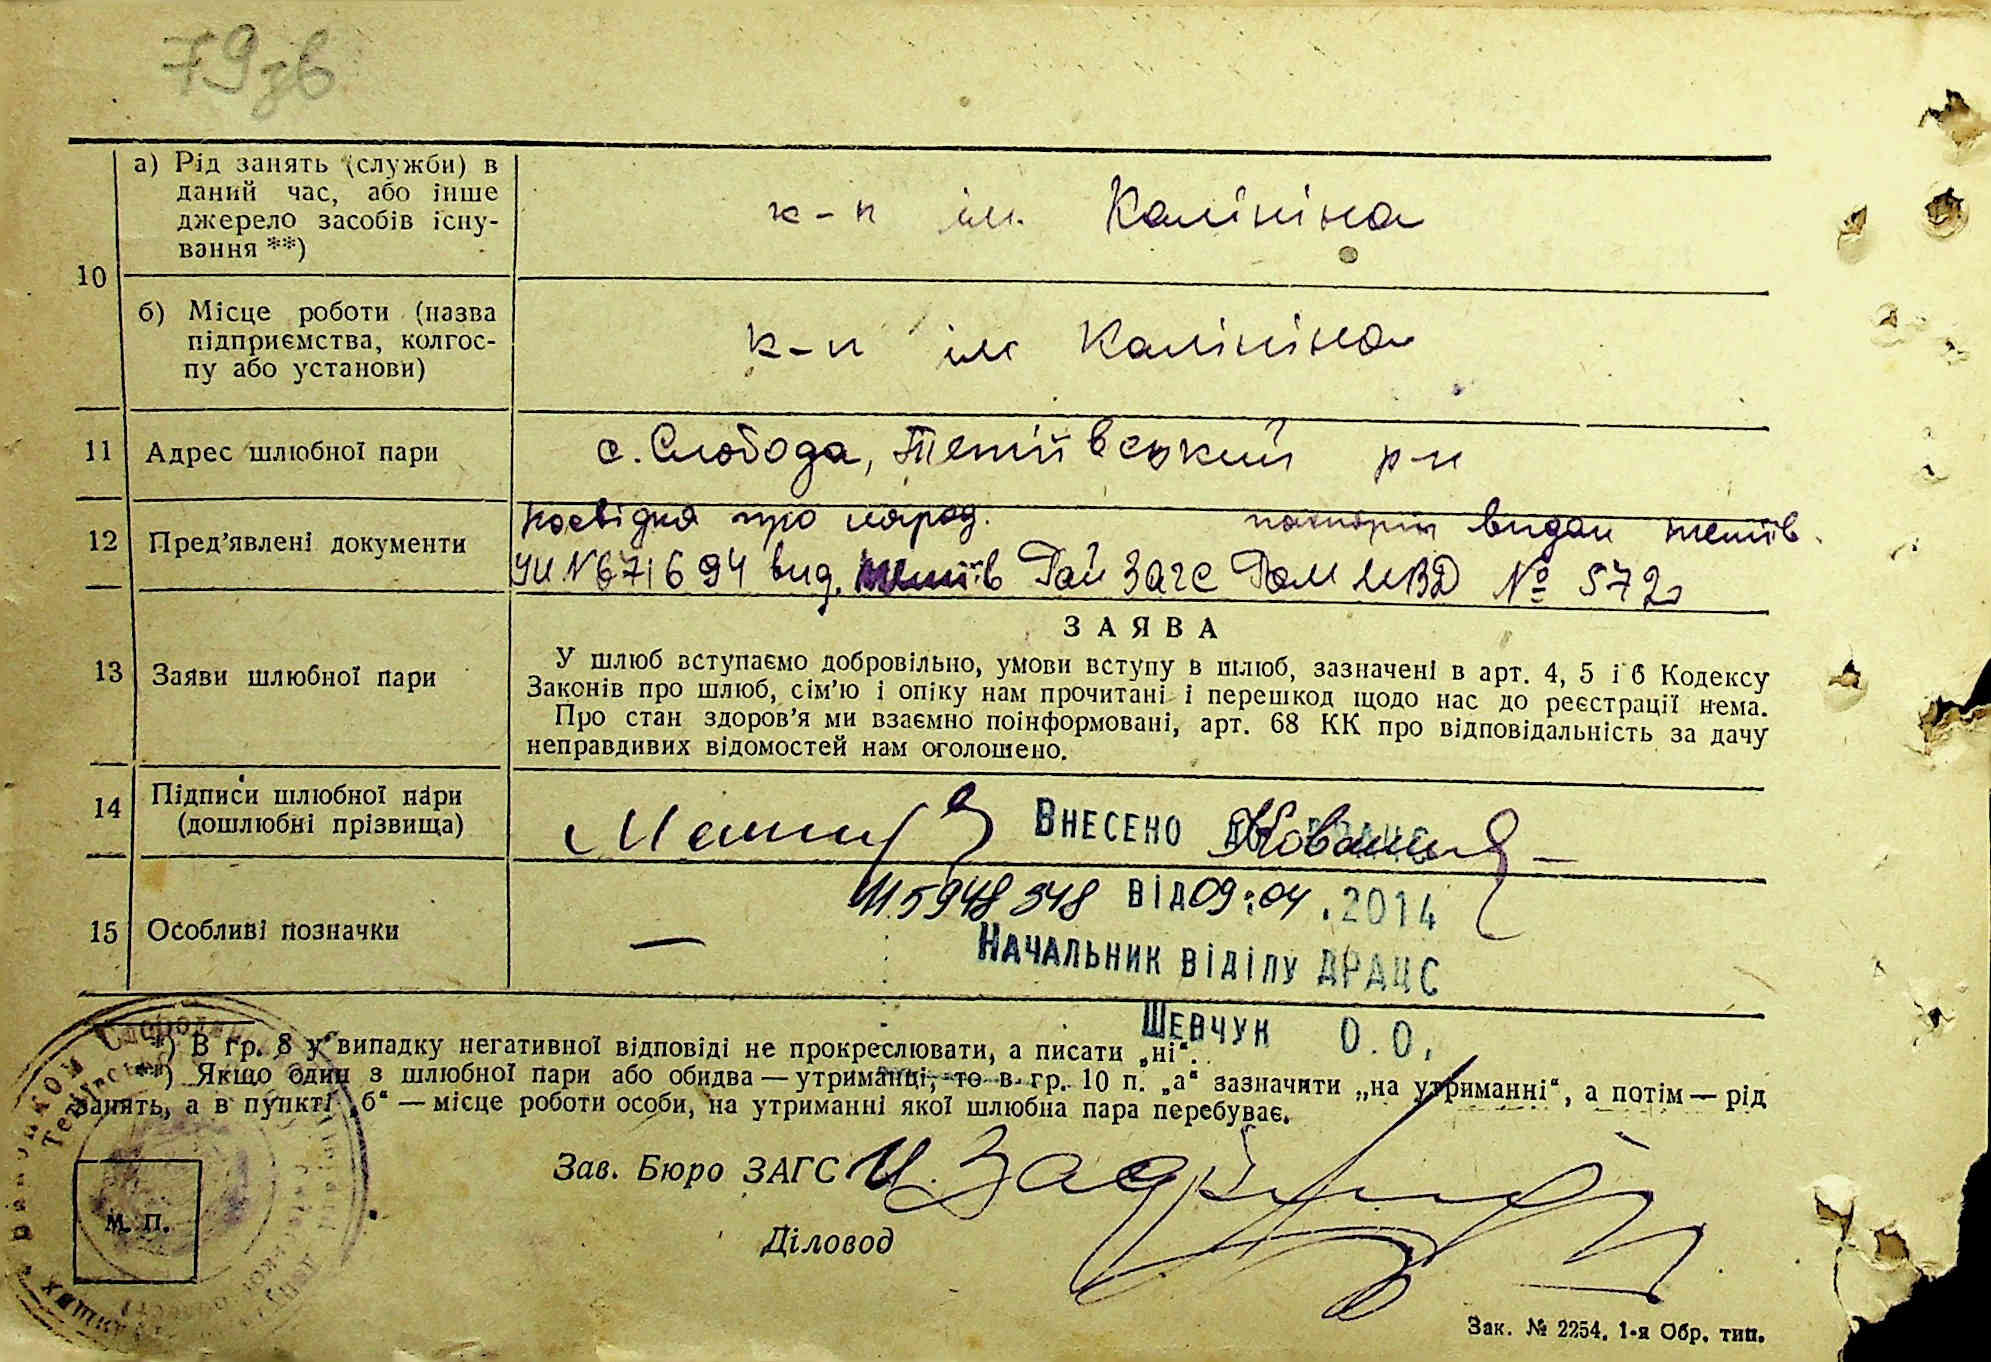 79зв
а) Рід занять (служби) в
даний час, або інше
джерело засобів існу-
вання **)
к-п ім. Калініна
10
б) Місце роботи (назва
підприємства, колгос-
пу або установи)
к-п ім Калініна
11 Адрес шлюбної пари
с. Слобода, Тетіївський р-н
12 Пред’явлені документи
посвідка про народ. паспорт видан Тетіїв.
№ 671694 вид. Тетіїв Рай Загс Рай МВД № 572
13 Заяви шлюбної пари
ЗАЯВА
У шлюб вступаємо добровільно, умови вступу в шлюб, зазначені в арт. 4, 5 і 6 Кодексу
Законів про шлюб, сім’ю і опіку нам прочитані і перешкод щодо нас до реєстрації нема.
Про стан здоров’я ми взаємно поінформовані, арт. 68 КК про відповідальність за дачу
неправдивих відомостей нам оголошено.
14 Підписи шлюбної пари
(дошлюбні прізвища)
Внесено до ДРАЦС
5948348 від 09.04.2014
15 Особливі позначки
—
Начальник відділу ДРАЦС
Шевчук О.О.
*) В гр. 8 у випадку негативної відповіді не прокреслювати, а писати „ні“.
**) Якщо один з шлюбної пари або обидва — утриманці, то в гр. 10 п. „а“ зазначити „на утриманні“, а потім — рід
занять, а в пункті „б“ — місце роботи особи, на утриманні якої шлюбна пара перебуває.
Зав. Бюро ЗАГС
М. П.
Діловод
Зак. № 2254. 1-я Обр. тип.